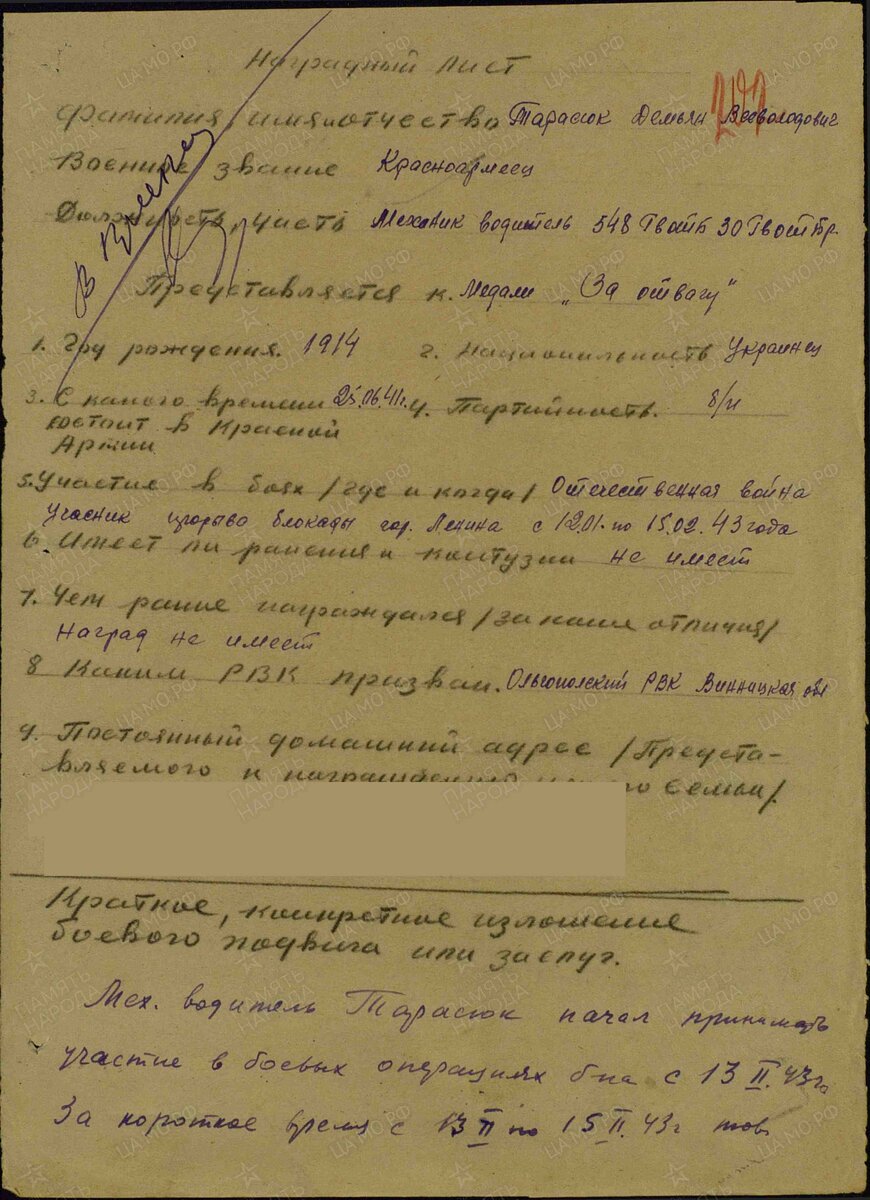 Наградный лист
Фамилия, имя и отчество Тарасюк Демьян Всеволодович
Военное звание Красноармеец
Должность, часть Механик водитель 548 Гвотб 30 Гвотбр.
Представляется к. Медали „За отвагу"
1. Год рождения. 1914 2. Национальность Украинец
3. С какого времени 25.06.41г. 4. Партийность. б/п
состоит в Красной
Армии
5. Участие в боях /где и когда/ Отечественная война
Учасник прорыва блокады гор. Ленина с 12.01. по 15.02.43 года
6. Имеет ли ранения и контузии не имеет
7. Чем ранее награждался /за какие отличия/
Наград не имеет
8 Каким РВК призван. Ольгопольский РВК Винницкая обл
9. Постоянный домашний адрес /Предста-
вляемого к семьи/.
Краткое, конкретное изложение
боевого подвига или заслуг.
Мех. водитель Тарасюк начал принимать
участие в боевых операциях б-на с 13 II. 43г.
За короткое время с 13 II по 15 II. 43г тов